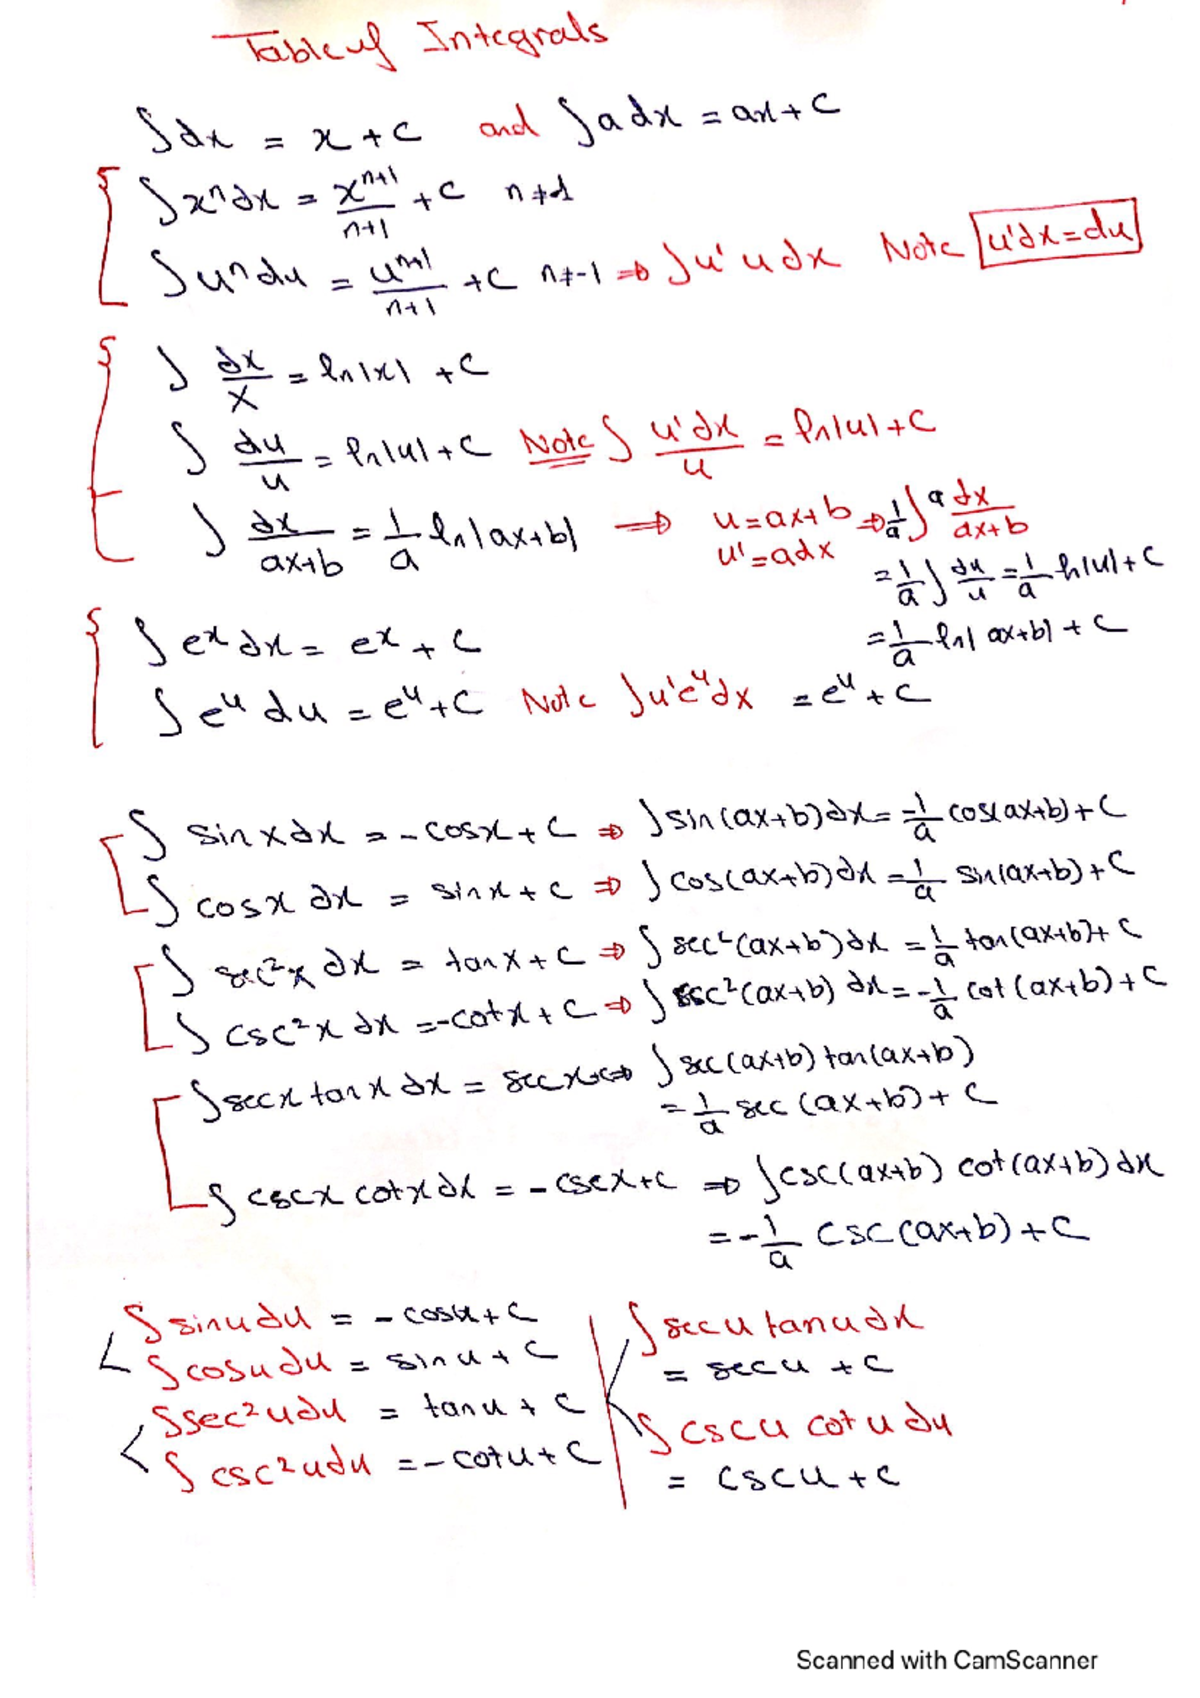 Table of Integrals
∫dx = x + c and ∫a dx = ax + c
∫xⁿdx = xⁿ⁺¹/n+1 + c n≠1
∫uⁿdu = uⁿ⁺¹/n+1 + c n≠-1 ⇒ ∫u' u dx Note u'dx=du
∫ dx/x = ln|x| + c
∫ du/u = ln|u| + c Note ∫ u'dx/u = ln|u| + c
∫ dx/ax+b = 1/a ln|ax+b| ⇒ u=ax+b ⇒ 1/a ∫ a dx/ax+b
u'=adx
= 1/a ∫ du/u = 1/a ln|u| + c
= 1/a ln| ax+b| + c
∫ eˣ dx = eˣ + c
∫ eᵘ du = eᵘ + c Note ∫u'eᵘdx = eᵘ + c
∫ sin x dx = - cosx + c ⇒ ∫sin(ax+b)dx = -1/a cos(ax+b) + c
∫ cosx dx = sinx + c ⇒ ∫cos(ax+b)dx = 1/a sin(ax+b) + c
∫ sec²x dx = tanx + c ⇒ ∫ sec²(ax+b)dx = 1/a tan(ax+b) + c
∫ csc²x dx = -cotx + c ⇒ ∫ csc²(ax+b) dx = -1/a cot(ax+b) + c
∫secx tanx dx = secx+c ⇒ ∫ sec(ax+b) tan(ax+b)
= 1/a sec (ax+b) + c
∫ cscx cotx dx = - cscx+c ⇒ ∫csc(ax+b) cot(ax+b) dx
= -1/a csc(ax+b) + c
∫sinu du = - cosu + c
∫cosu du = sinu + c
∫sec²u du = tanu + c
∫ csc²u du = - cotu + c
∫ secu tanu dx
= secu + c
∫ cscu cotu du
= cscu + c
Scanned with CamScanner